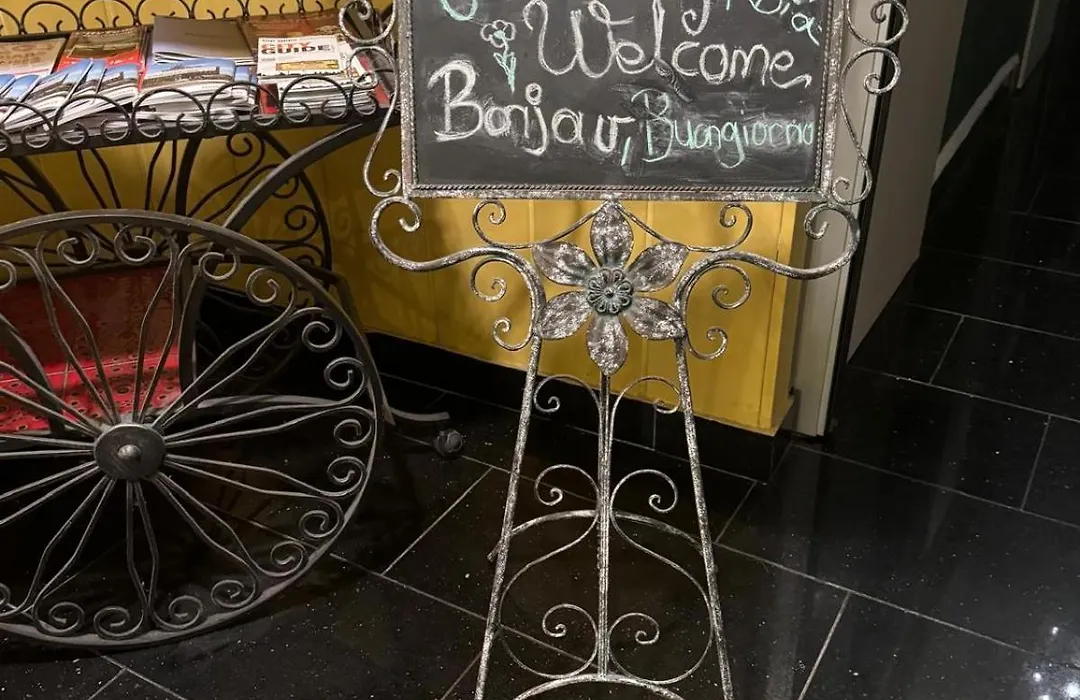 Welcome,
Bonjour, Buongiorno
CITY
GUIDE